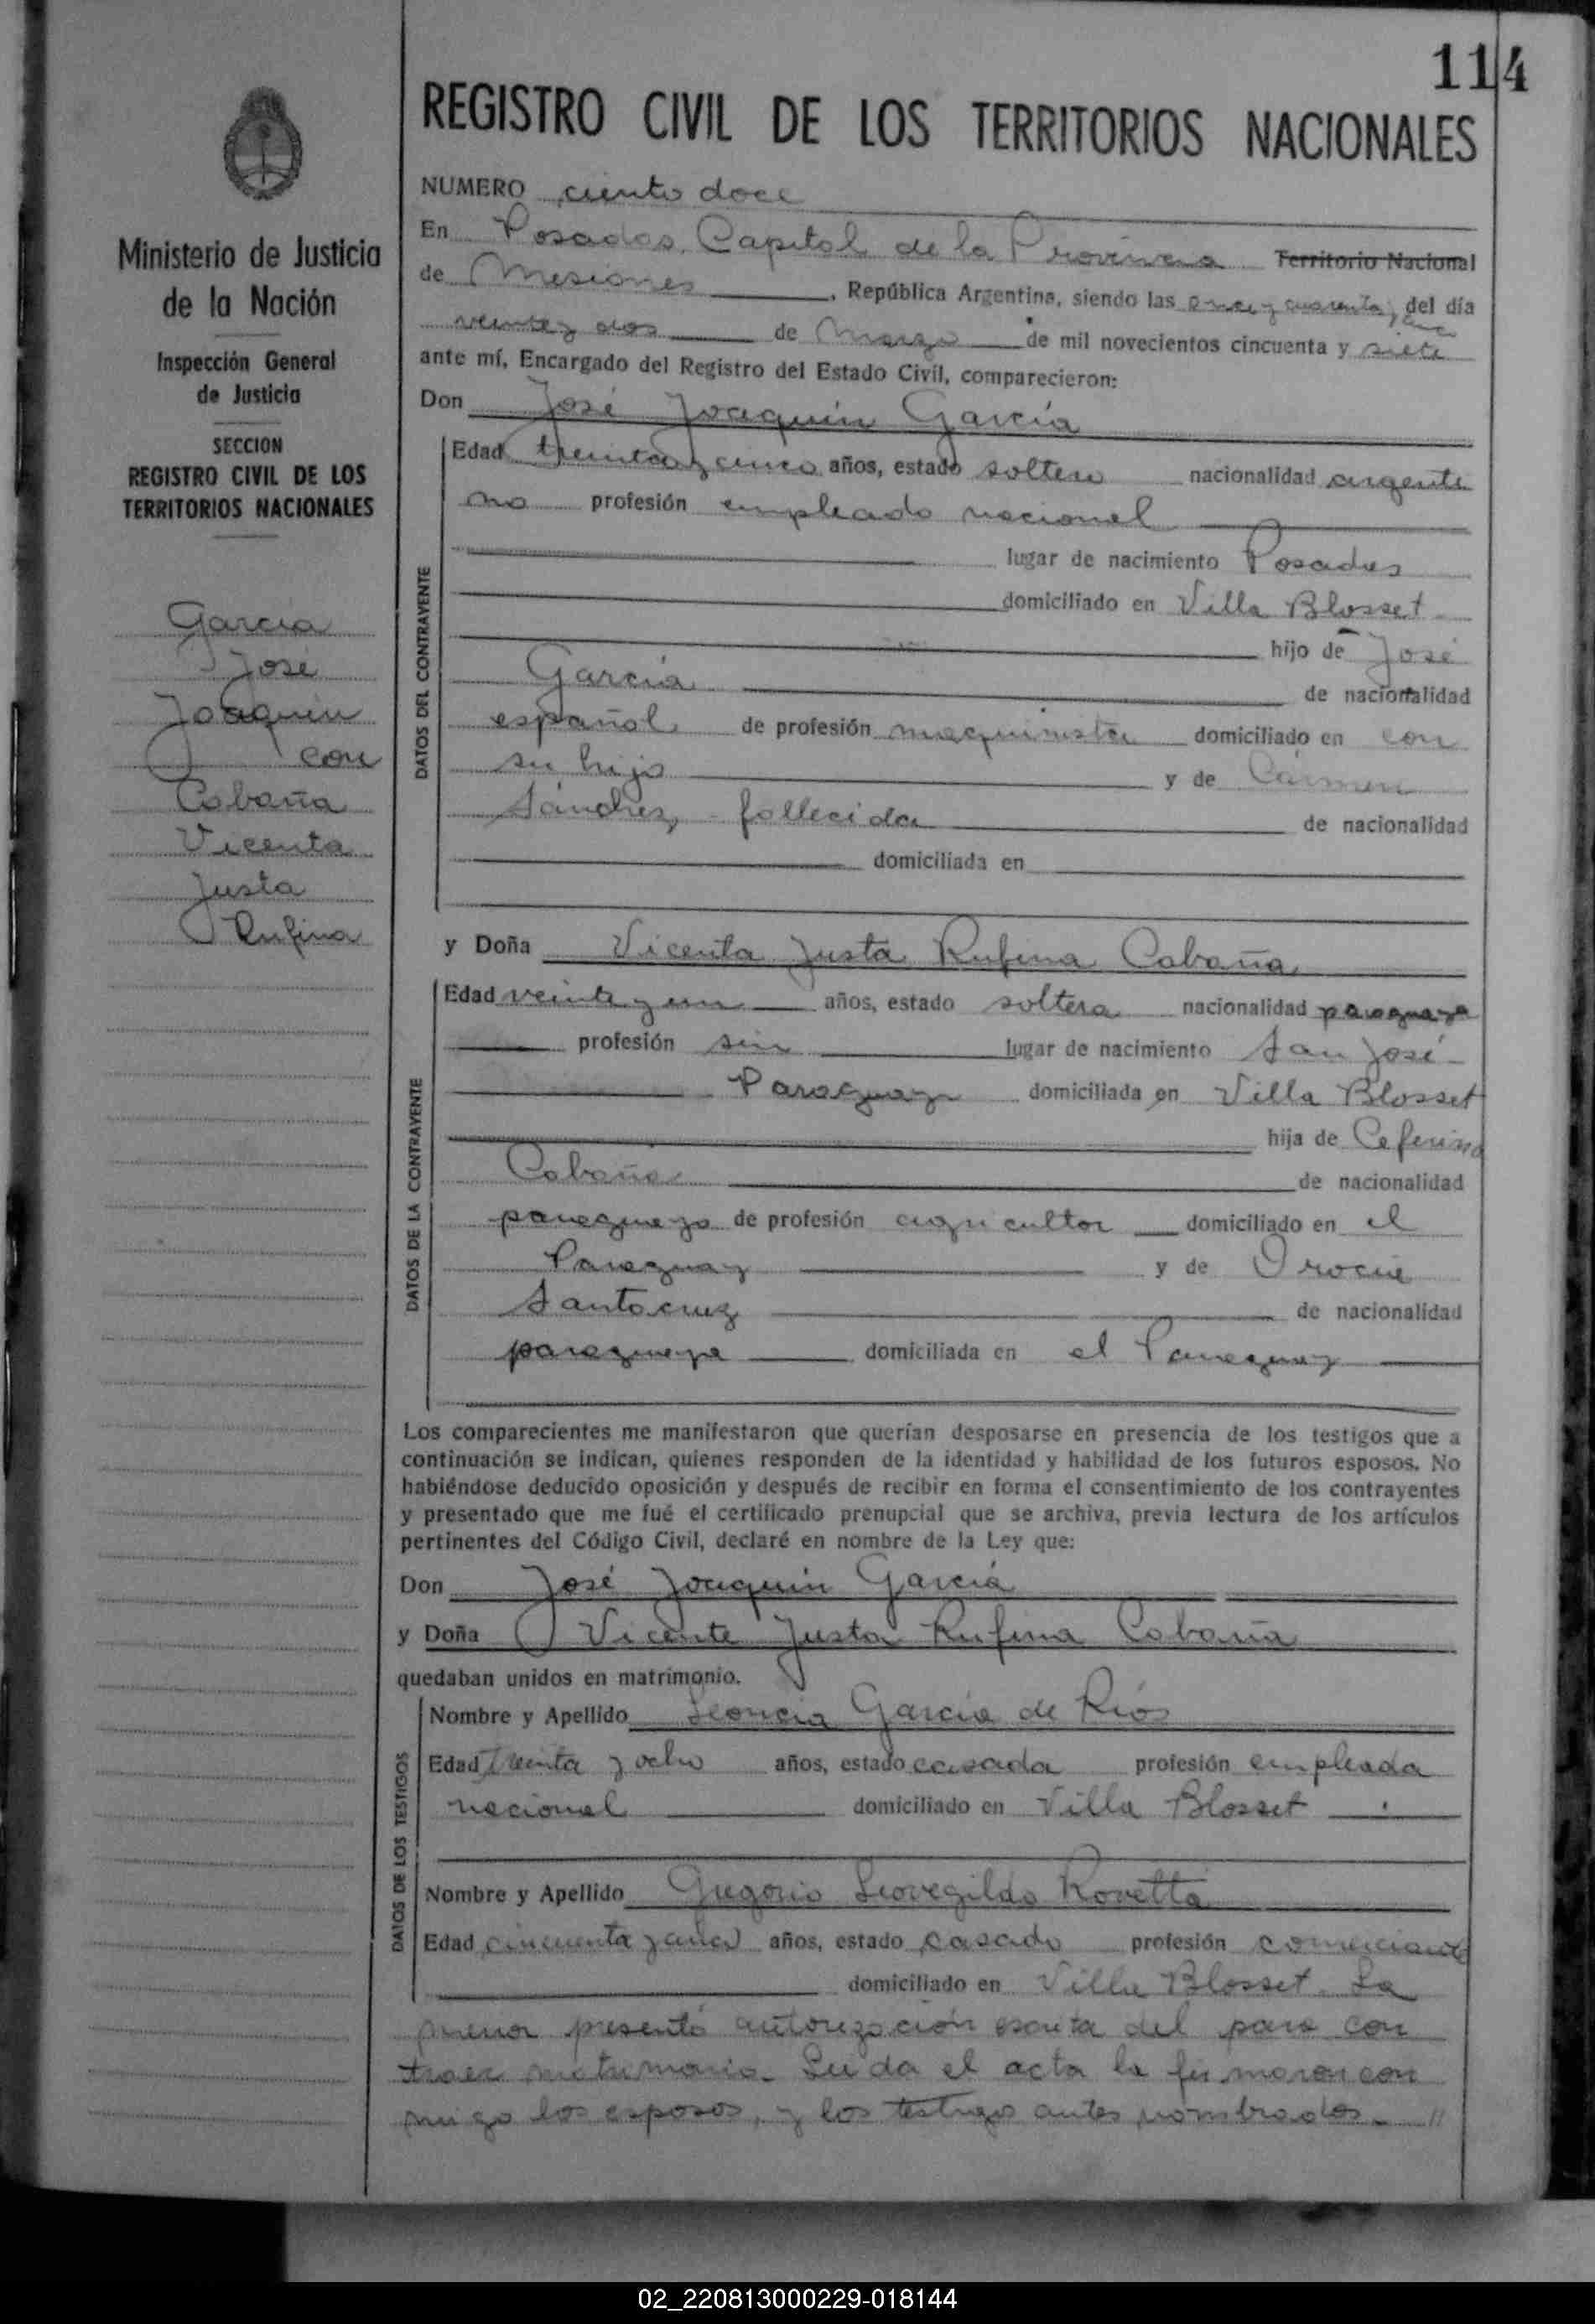 114
REGISTRO CIVIL DE LOS TERRITORIOS NACIONALES
Ministerio de Justicia
de la Nación
Inspección General
de Justicia
SECCION
REGISTRO CIVIL DE LOS
TERRITORIOS NACIONALES
García
José
Joaquín
con
Cabaña
Vicenta
Justa
Rufina
NUMERO ciento doce
En Posadas, Capital de la Provincia Territorio Nacional
de Misiones, República Argentina, siendo las once y cuarenta y cinco del día
veinte y dos de Marzo de mil novecientos cincuenta y siete
ante mí, Encargado del Registro del Estado Civil, comparecieron:
Don José Joaquín García
DATOS DEL CONTRAYENTE
Edad treinta y cinco años, estado soltero nacionalidad argenti
no profesión empleado nacional
lugar de nacimiento Posadas
domiciliado en Villa Blosset
hijo de José
García de nacionalidad
español de profesión maquinista domiciliado en con
su hijo y de Cármen
Sánchez, fallecida de nacionalidad
domiciliada en
y Doña Vicenta Justa Rufina Cabaña
DATOS DE LA CONTRAYENTE
Edad veinte y un años, estado soltera nacionalidad paraguaya
profesión sin lugar de nacimiento San José
Paraguay domiciliada en Villa Blosset
hija de Ceferino
Cabaña de nacionalidad
paraguayo de profesión agricultor domiciliado en el
Paraguay y de
Santacruz de nacionalidad
paraguaya domiciliada en el Paraguay
Los comparecientes me manifestaron que querían desposarse en presencia de los testigos que a
continuación se indican, quienes responden de la identidad y habilidad de los futuros esposos. No
habiéndose deducido oposición y después de recibir en forma el consentimiento de los contrayentes
y presentado que me fué el certificado prenupcial que se archiva, previa lectura de los artículos
pertinentes del Código Civil, declaré en nombre de la Ley que:
Don José Joaquín García
y Doña Vicenta Justa Rufina Cabaña
quedaban unidos en matrimonio.
DATOS DE LOS TESTIGOS
Nombre y Apellido Leoncia García de Ríos
Edad Treinta y ocho años, estado casada profesión empleada
nacional domiciliado en Villa Blosset
Nombre y Apellido Gregorio Leovegildo Rovetta
Edad cincuenta y años, estado casado profesión comerciante
domiciliado en Villa Blosset. La
menor presentó autorización escrita del para con
traer matrimonio. Leída el acta la firmaron con
migo los esposos, y los testigos antes nombrados.
02_220813000229-018144